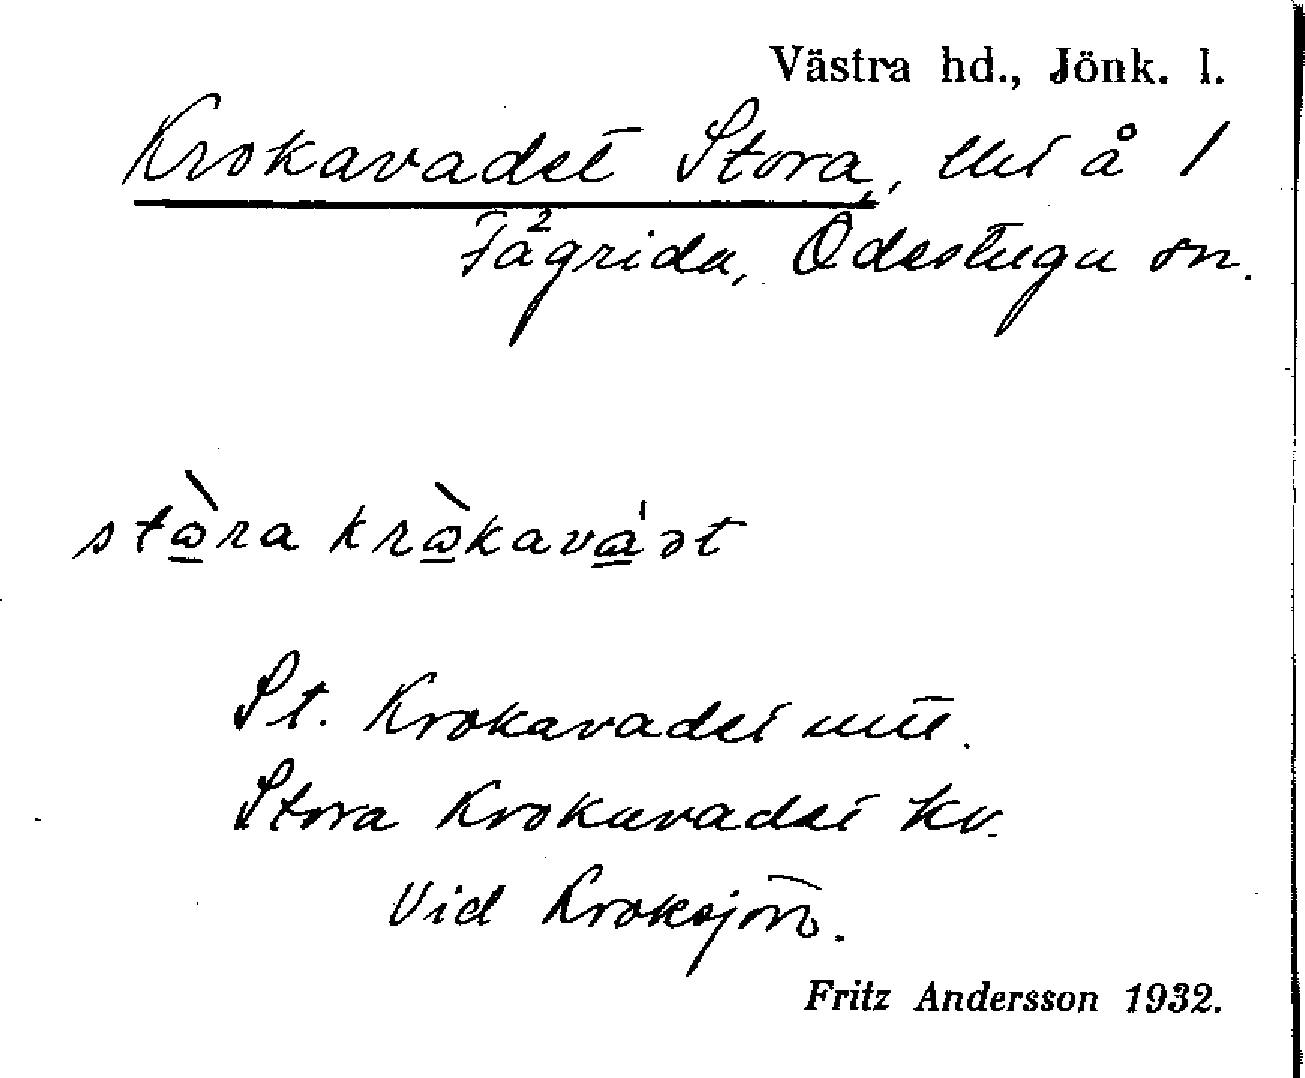 Västra hd., Jönk. l.
Krokavadet Stora, utit å 1
Fågrida², Ödestugu sn.
stὼra krὼkava̲'ət
St. Krokavadet utit.
Stora Krokavadet kv.
Vid Kroksjön.
Fritz Andersson 1932.